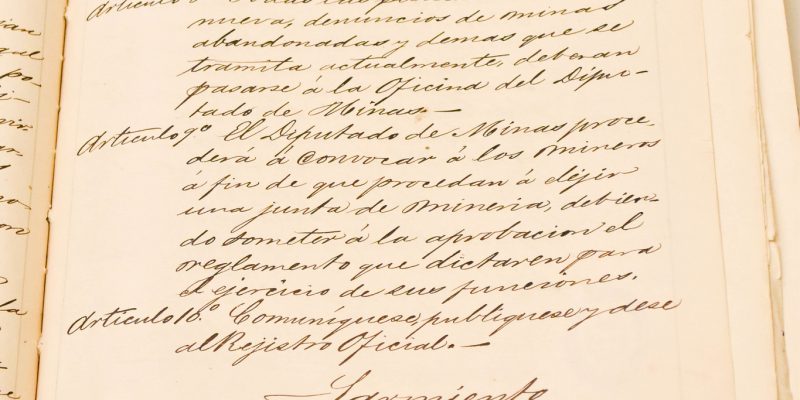 nueva, denuncios de minas
abandonadas y demas que se
tramita actualmente, deberan
pasarse á la Oficina del Dipu-
tado de Minas.—
Artículo 9º El Diputado de Minas proce-
derá á convocar á los mineros
á fin de que procedan á elejir
una junta de mineria, debien-
do someter á la aprobacion el
reglamento que dictaren para
el ejercicio de sus funciones.
Artículo 10.º Comuníquese, publíquese y dese
al Rejistro Oficial.—
Sarmiento